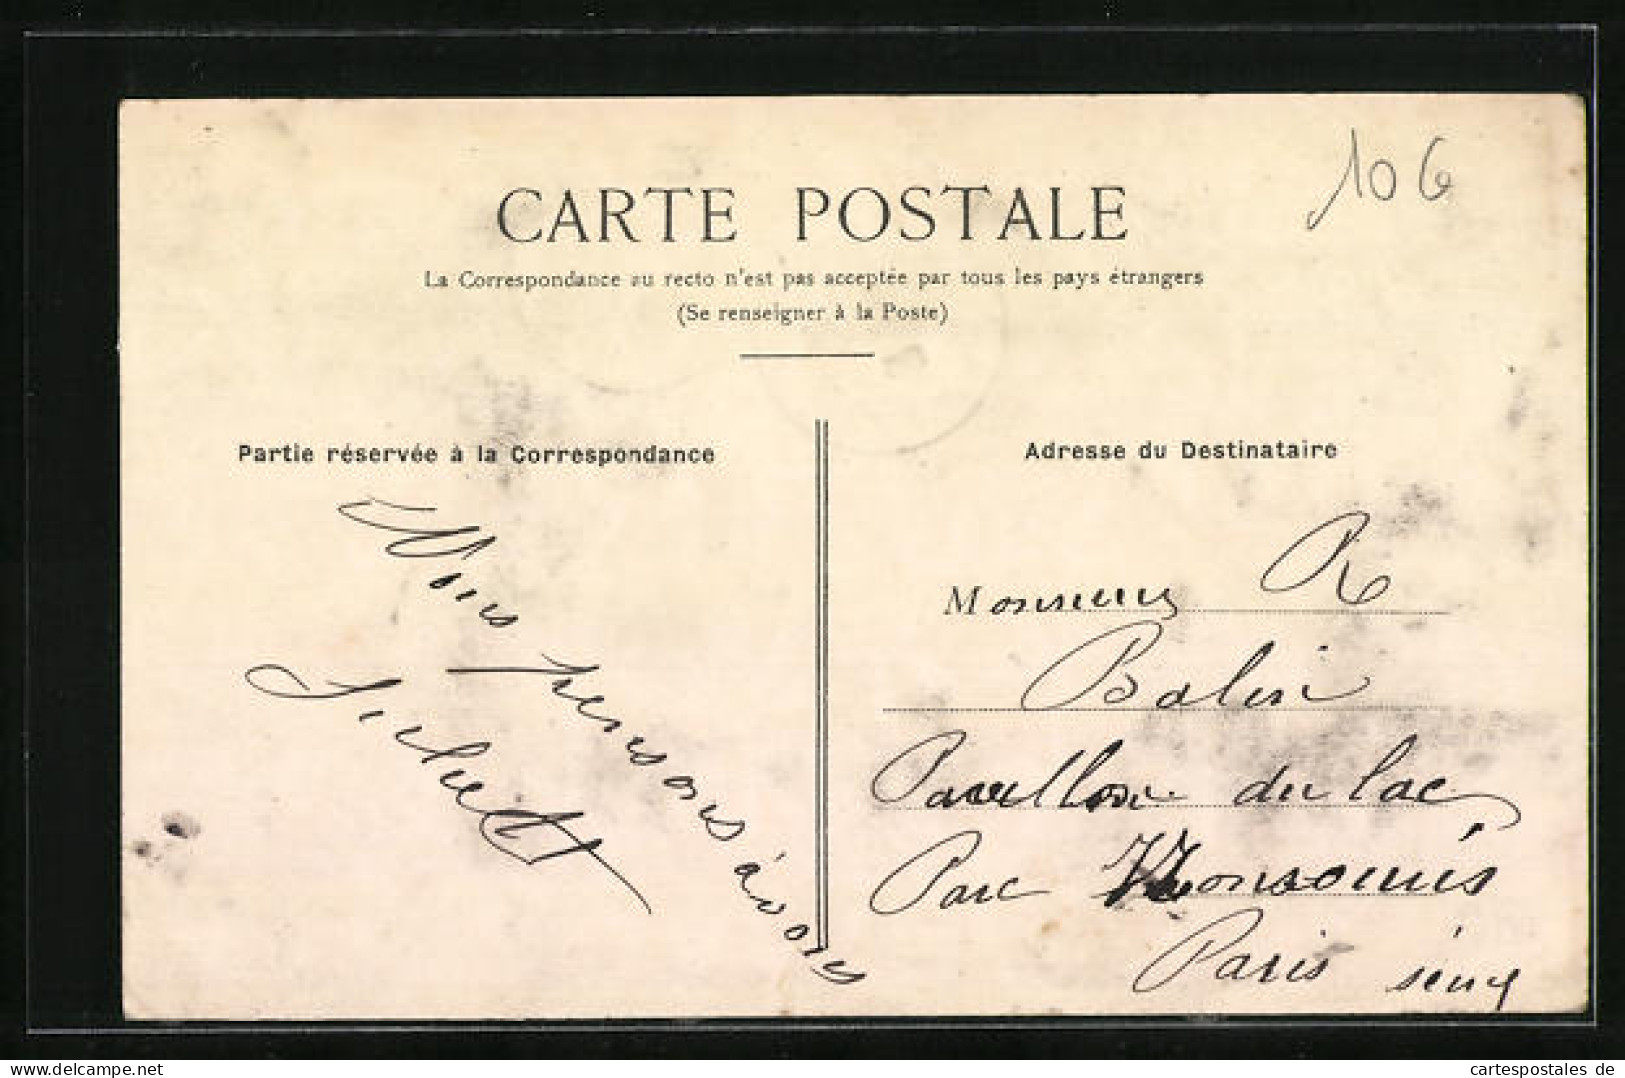 106
CARTE POSTALE
La Correspondance au recto n'est pas acceptée par tous les pays étrangers
(Se renseigner à la Poste)
Partie réservée à la Correspondance
Nous pensons à vous
Adresse du Destinataire
Monsieur R
Balin
Pavillon du lac
Parc Monsouris
Paris seine
www.delcampe.net
cartespostales de